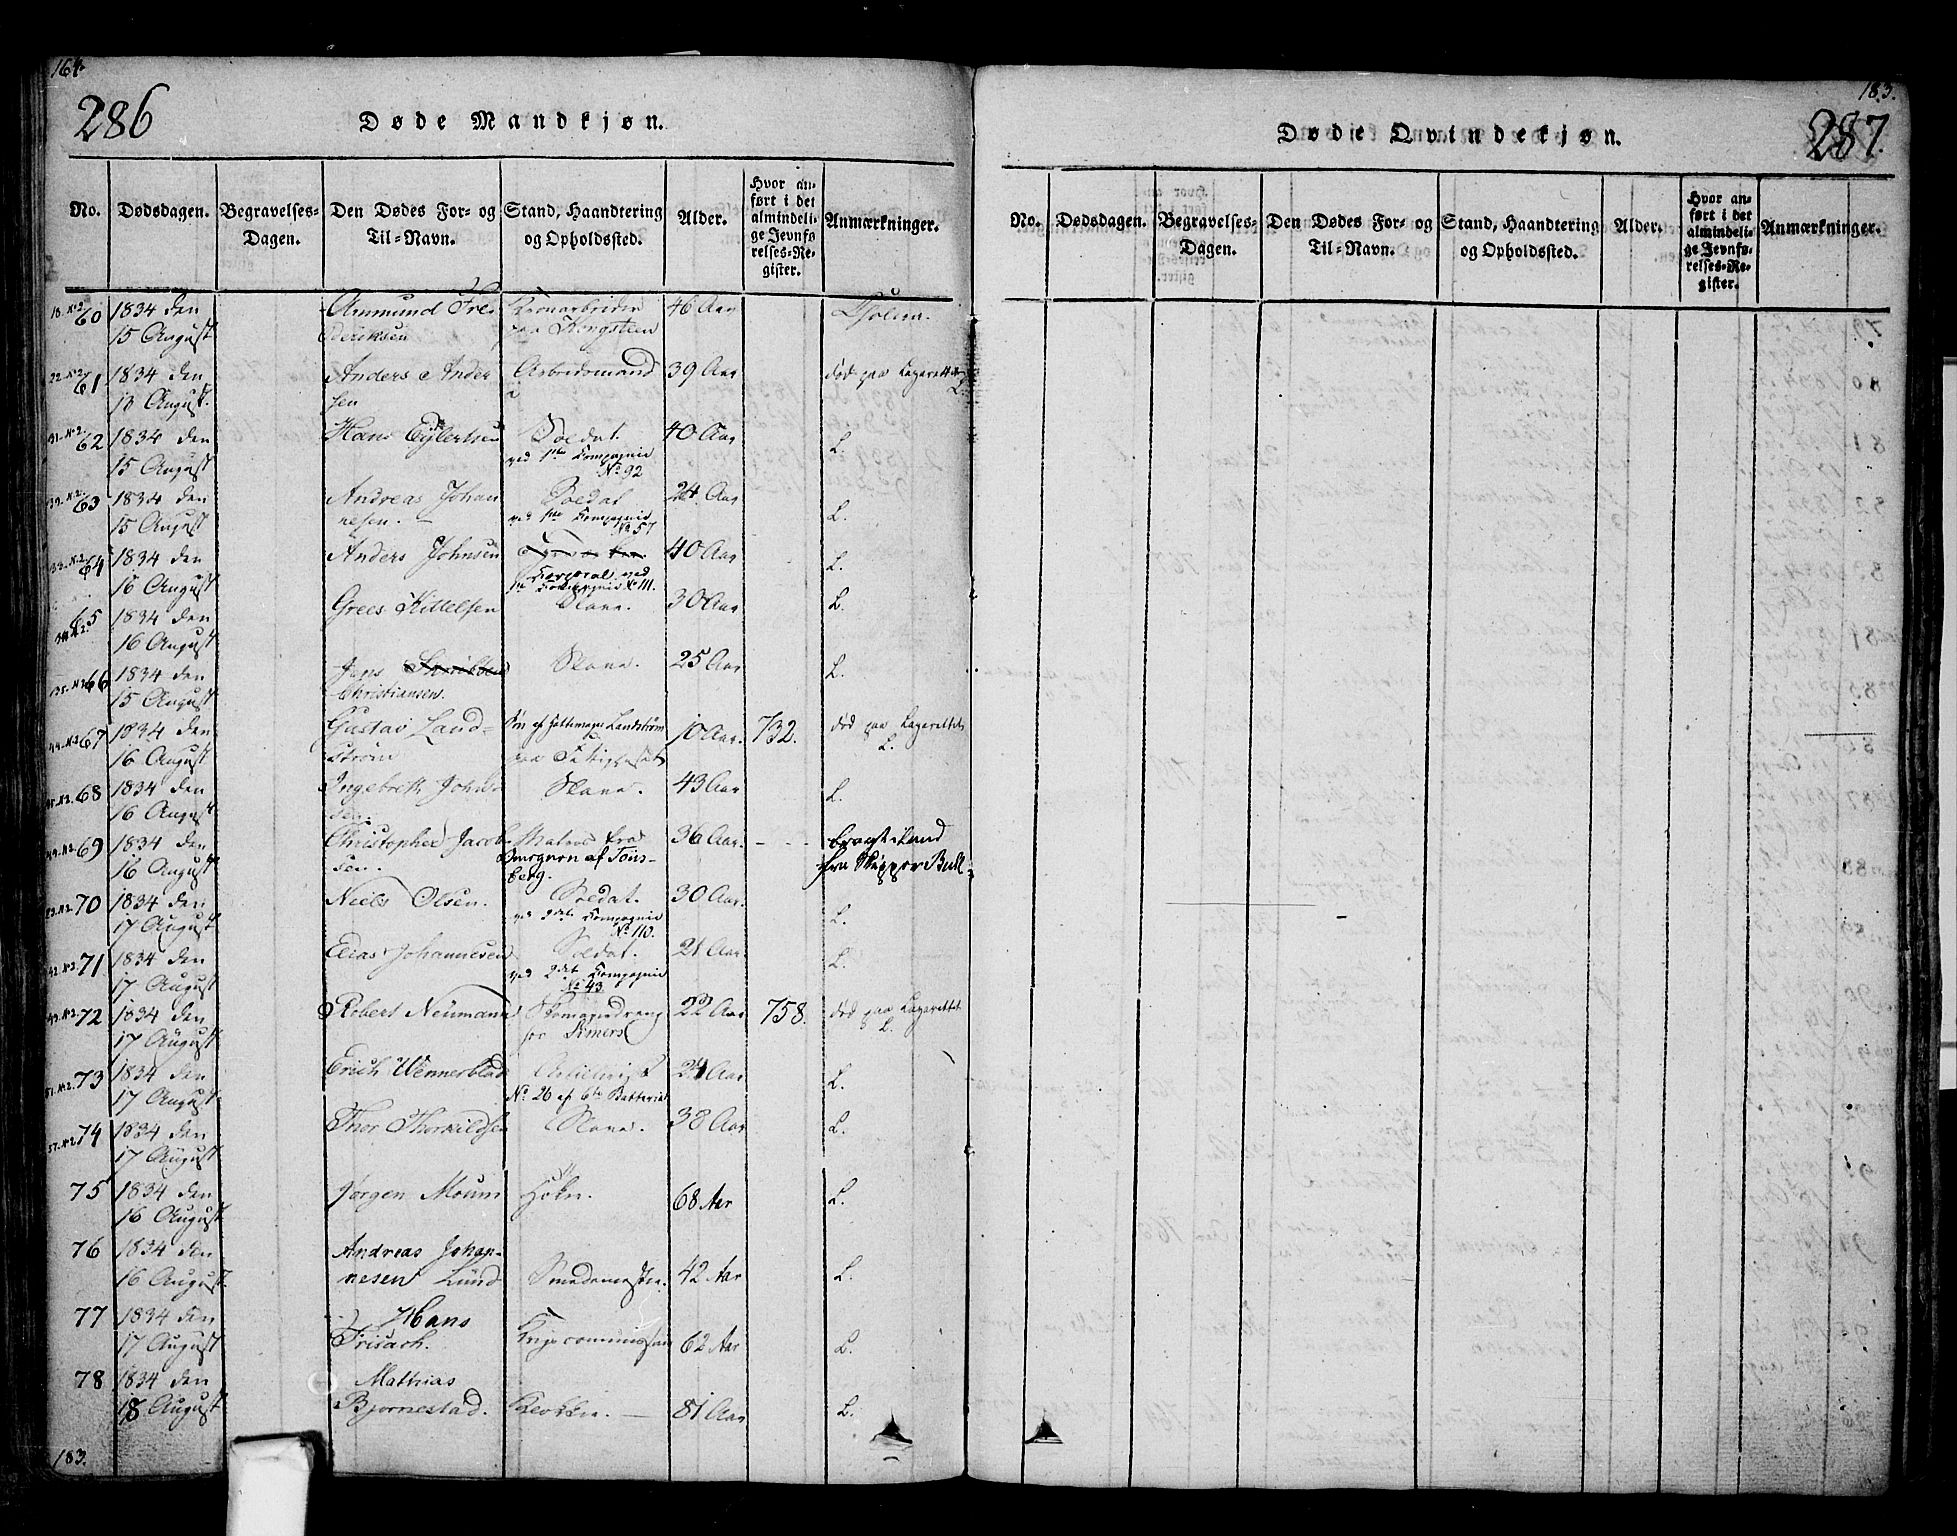 164.
286
Døde Mandkjøn.
No.
Dødsdagen.
Begravelses-
Dagen.
Den Dødes For- og
Til-Navn.
Stand, Haandtering
og Opholdssted.
Alder.
Hvor an-
ført i det
almindeli-
ge Jevnfø-
relses-Re-
gister.
Anmærkninger.
60 1834 den Asmund Fre- 46 Aar
15 August deriksen paa Kongsteen
61 1834 den Anders Ander Arbeidsmand 39 Aar død paa Lazarettet
18 August. sen L.
62 1834 den Hans Eylertsen Soldat. 40 Aar L.
15 August ved 1ste Compagnie
No 92
63 1834 den Andreas Johan Soldat 24 Aar L.
15 August nesen. ved 1ste Compagnie
No 57
64 1834 den Anders Johnsen 40 Aar L.
16 August Corporal ved
Compagnie No 111.
65 1834 den Grees Kittelsen Slave. 30 Aar L.
16 August
66 1834 den Jens Slave. 25 Aar L.
15 August Christiansen.
67 1834 den Gustav Land- Søn af Landstrøm 10 Aar. 732. død paa Lazarettet
16 August strøm paa Fattighuset L.
68 1834 den Ingebreth Johan Slave. 43 Aar L.
16 August sen.
69 1834 den Christopher Jacob- Matros fra 36 Aar. bragt i Land
16 August sen. af Tøns- fra Skipper Bull
berg.
70 1834 den Niels Olsen. Soldat. 30 Aar. L.
17 August ved Compagnie
No 110.
71 1834 den Elias Johannesen Soldat. 21 Aar. L.
17 August ved 2det Compagnie
No 43
72 1834 den Robert Neumann 22 Aar 758. død paa Lazarettet
17 August L.
73 1834 den Erich Wennerblad 24 Aar L.
17 August No 26 af 6te Batterie
74 1834 den Thor Thorkildsen Slave. 38 Aar L.
17 August
75 1834 den Jørgen Moum 68 Aar L.
16 August
76 1834 den Andreas Johan-
16 August nesen Lund Smedemester. 42 Aar L.
77 1834 den Hans
17 August Frisach. 62 Aar L.
78 1834 den Mathias
18 August Bjørnestad. 81 Aar L.
183.
183.
287.
Døde Qvindekjøn.
No.
Dødsdagen.
Begravelses-
Dagen.
Den Dødes For- og
Til-Navn.
Stand, Haandtering
og Opholdssted.
Alder.
Hvor an-
ført i det
almindeli-
ge Jevnfø-
relses-Re-
gister.
Anmærkninger.